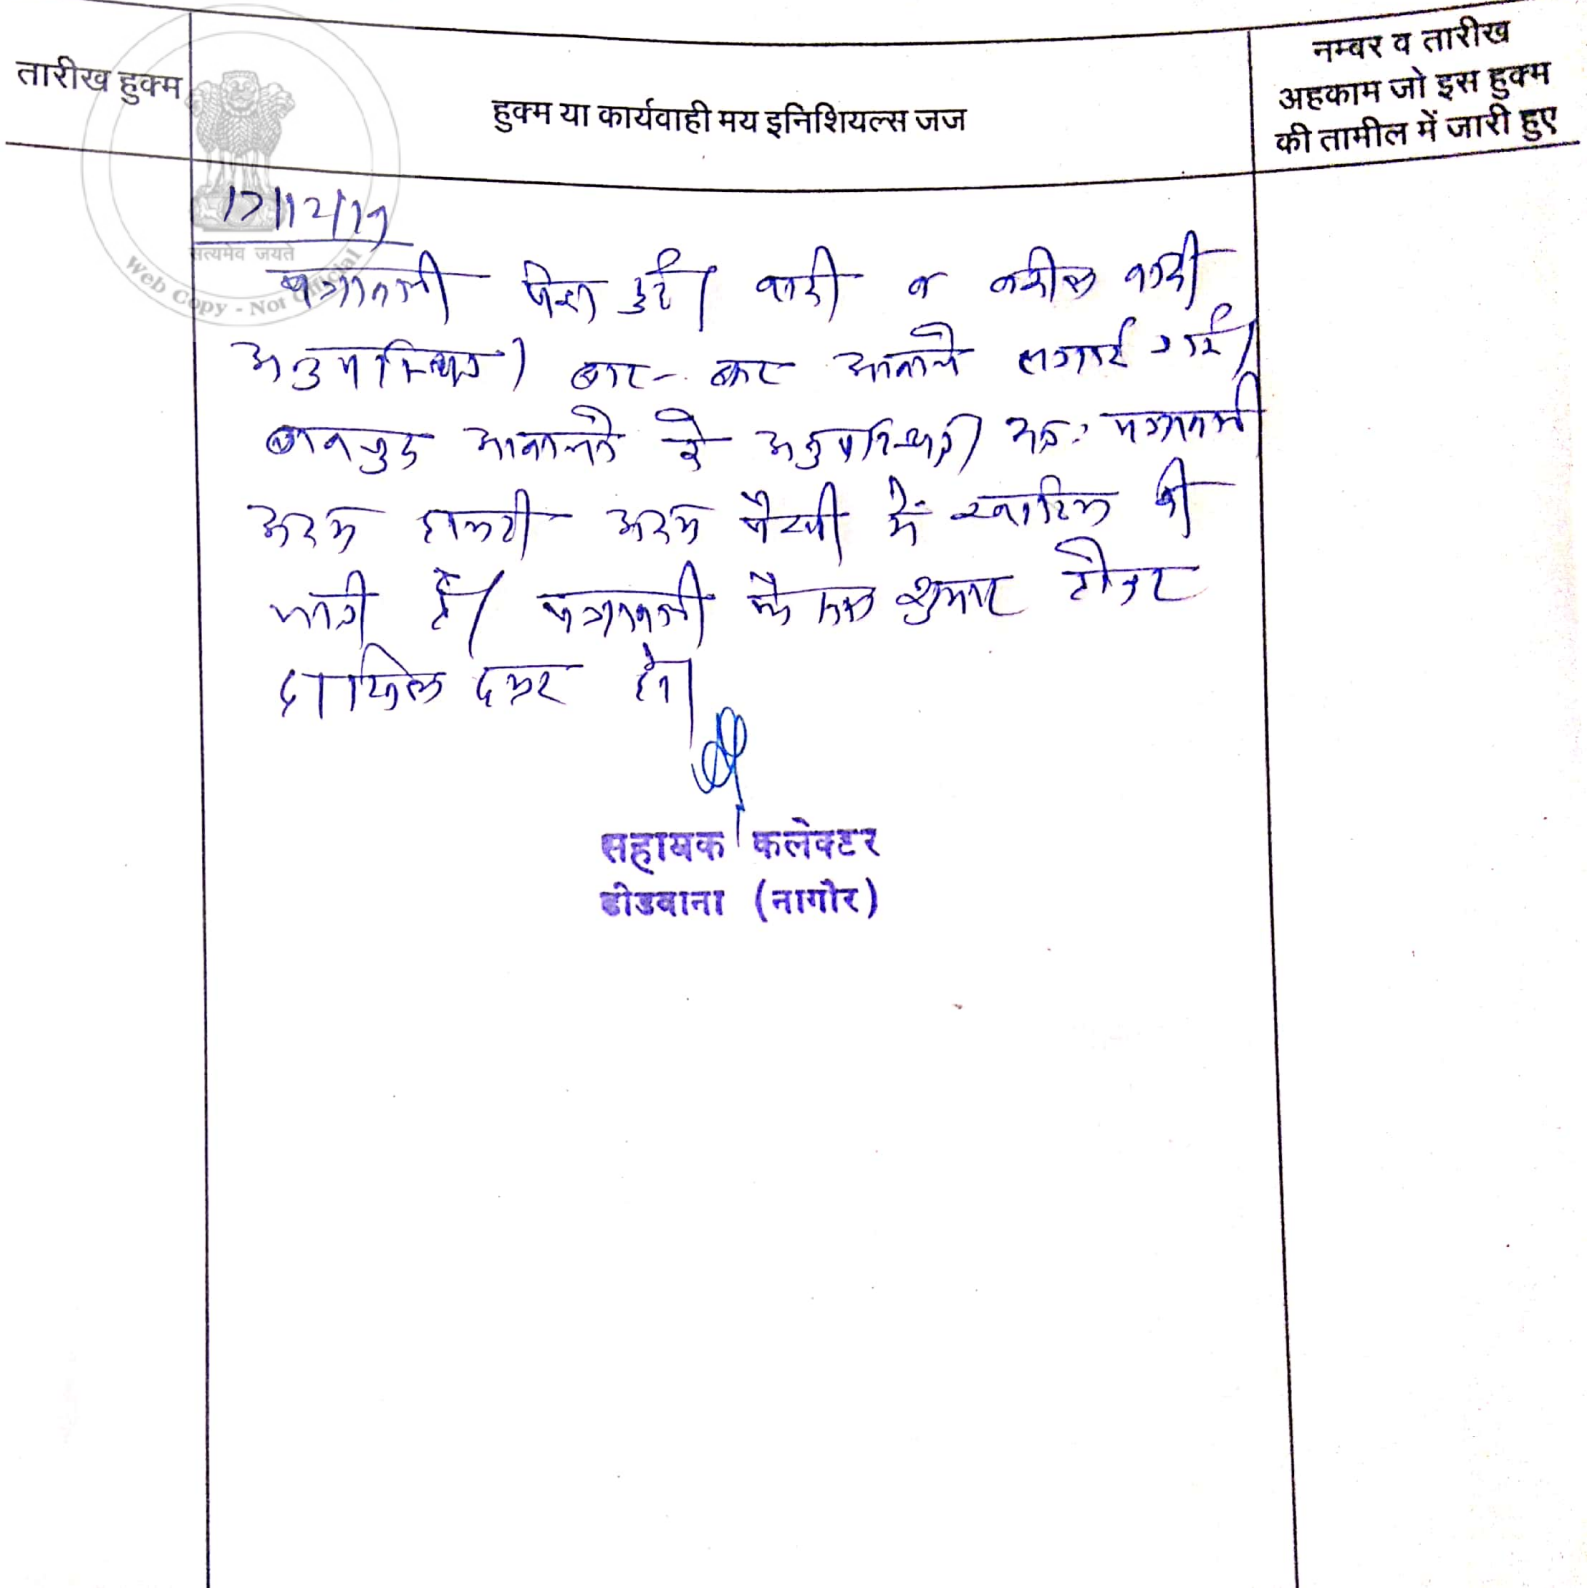 तारीख हुक्म
हुक्म या कार्यवाही मय इनिशियल्स जज
नम्बर व तारीख
अहकाम जो इस हुक्म
की तामील में जारी हुए
सत्यमेव जयते
Web Copy - Not Official
17/12/19
पत्रावली पेश हुई। वादी व वकील वादी
अनुपस्थित। बार-बार आवाजे लगाई गई।
बावजुद आवाजो के अनुपस्थित। अतः पत्रावली
अदम हाजरी अदम पैरवी में खारिज की
जाती है। पत्रावली फैसल शुमार होकर
दाखिल दफ्तर हो।
सहायक कलेक्टर
डीडवाना (नागौर)